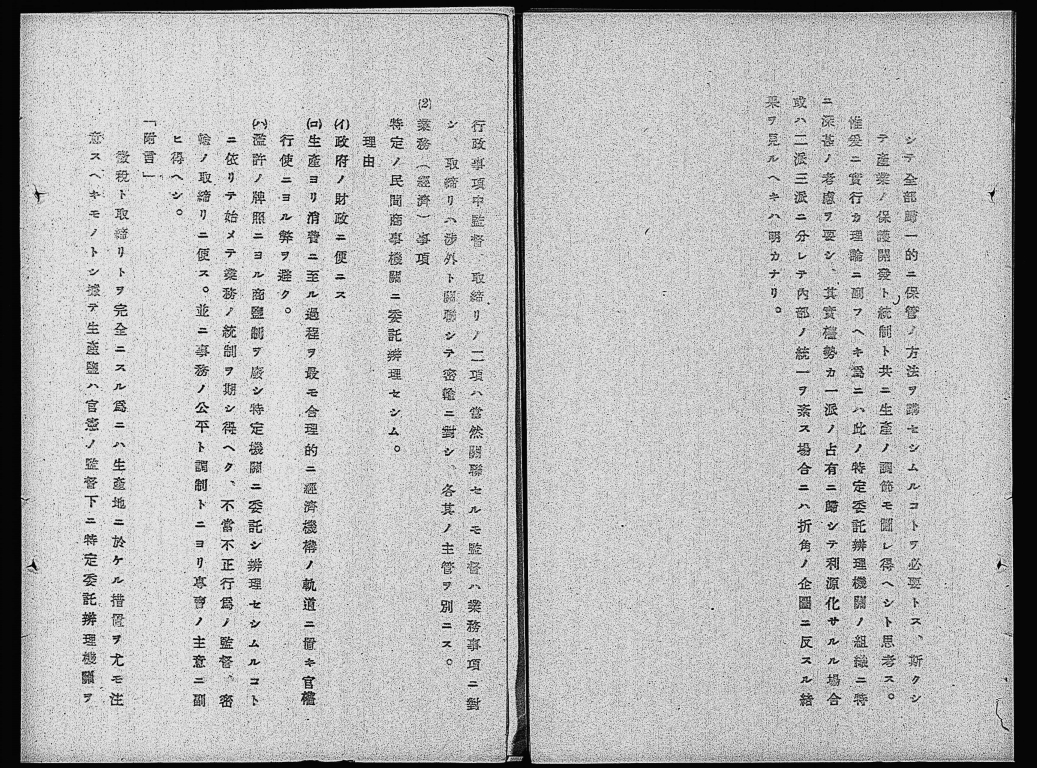 シテ全部歸一的ニ保管ノ方法ヲ講セシムルコトヲ必要トス、斯クシ
テ産業ノ保護開發ト統制ト共ニ生産ノ調節モ圖レ得ヘシト思考ス。
惟愛ニ實行カ理論ニ副フヘキ爲ニハ此ノ特定委託辨理機關ノ組織ニ特
ニ深甚ノ考慮ヲ要シ、其實權勢カ一派ノ占有ニ歸シテ利源化サルル場合
或ハ二派三派ニ分レテ內部ノ統一ヲ紊ス場合ニハ折角ノ企圖ニ反スル結
果ヲ見ルヘキハ明カナリ。
行政事項中監督、取締リノ二項ハ當然關聯セルモ監督ハ業務事項ニ對
シ、取締リハ涉外ト關聯シテ密輸ニ對シ、各其ノ主管ヲ別ニス。
(2)業務(經濟)事項
特定ノ民間商事機關ニ委託辨理セシム。
理由
(イ)政府ノ財政ニ便ニス
(ロ)生産ヨリ消費ニ至ル過程ヲ最モ合理的ニ經濟機構ノ軌道ニ置キ官權
行使ニヨル弊ヲ避ク。
(ハ)濫許ノ牌照ニヨル商鹽制ヲ廢シ特定機關ニ委託シ辨理セシムルコト
ニ依リテ始メテ業務ノ統制ヲ期シ得ヘク、不當不正行爲ノ監督、密
輸ノ取締リニ便ス。並ニ事務ノ公平ト調制トニヨリ專賣ノ主意ニ副
ヒ得ヘシ。
「附言」
徵稅ト取締リトヲ完全ニスル爲ニハ生産地ニ於ケル措置ヲ尤モ注
意スヘキモノトシ據テ生產鹽ハ官憲ノ監督下ニ特定委託辨理機關ヲ